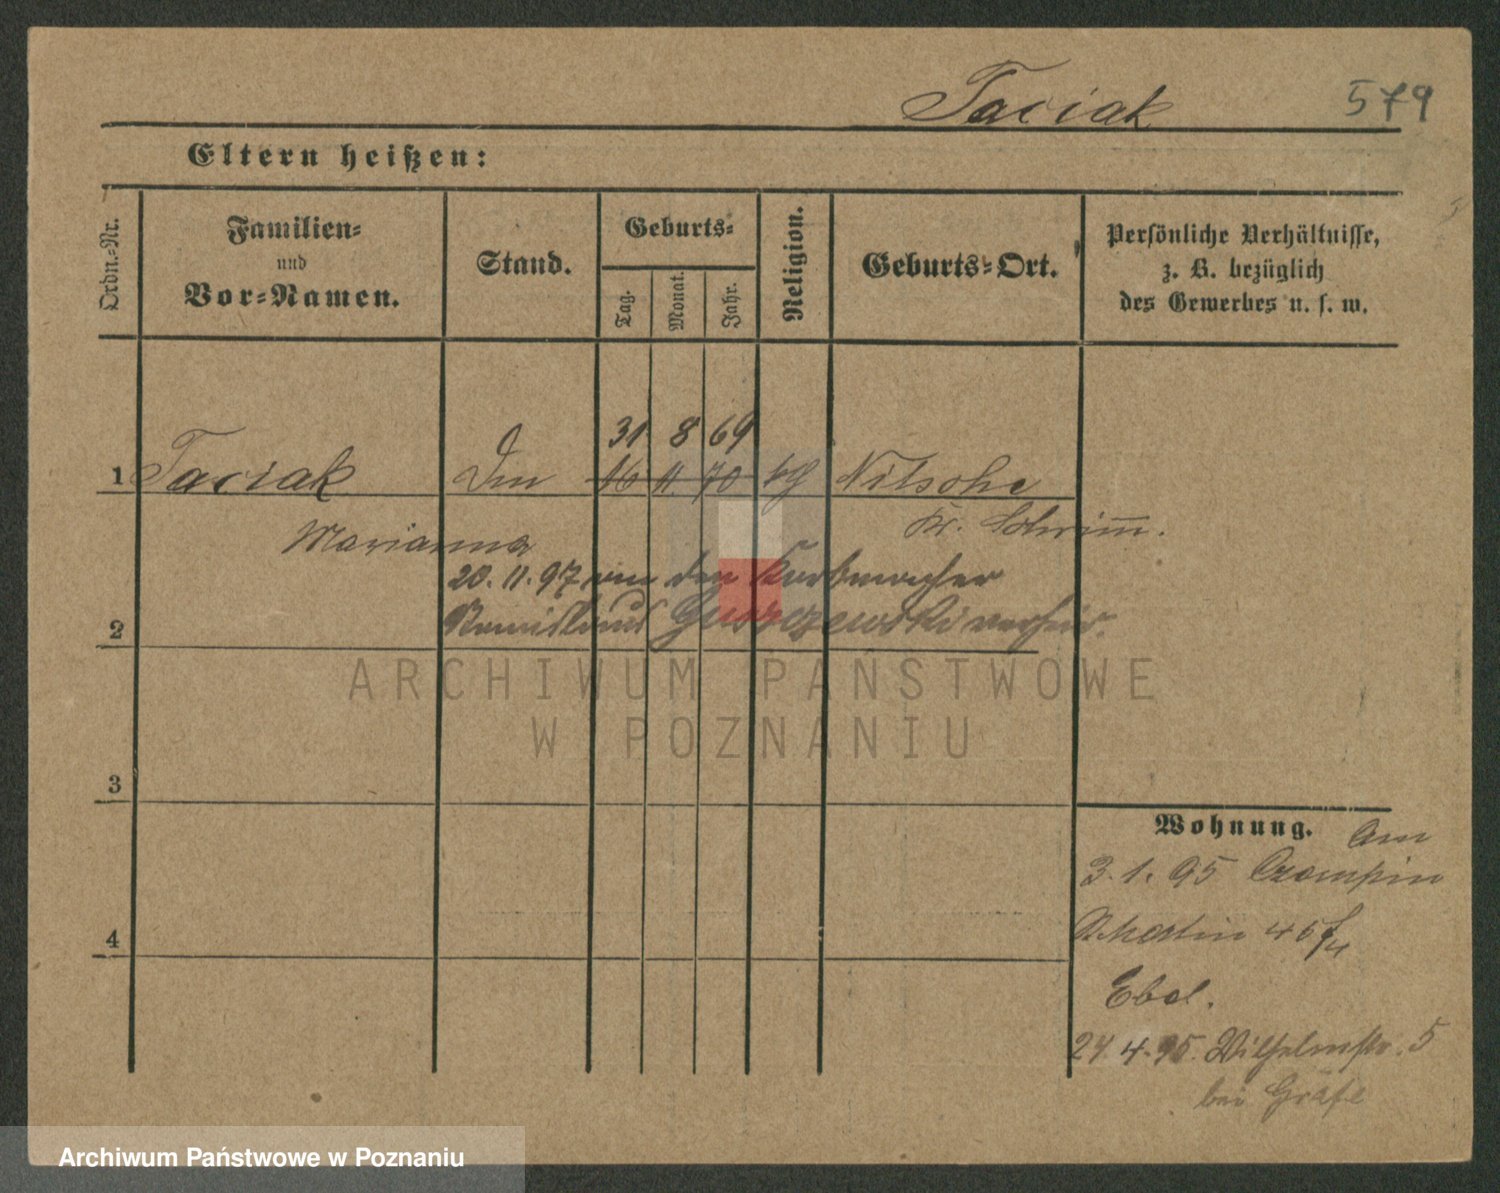 Taciak 579
Eltern heißen:
Ordn.-Nr.
Familien- und Vor-Namen.
Stand.
Geburts-
Tag.
Monat.
Jahr.
Religion.
Geburts-Ort.
Persönliche Verhältnisse,
z. B. bezüglich
des Gewerbes u. s. w.
31 8 69
1 Taciak 16 11 70 kg Nitsche
Marianna Kr. Schrimm.
20. 11. 97 den Korbmacher
2 verheir.
3
4
Wohnung. Am
3. 1. 95 Czempin
Martin 46
Ebd.
4. 95. Wilhelmstr. 5
bei Gräfe
ARCHIWUM PAŃSTWOWE
W POZNANIU
Archiwum Państwowe w Poznaniu